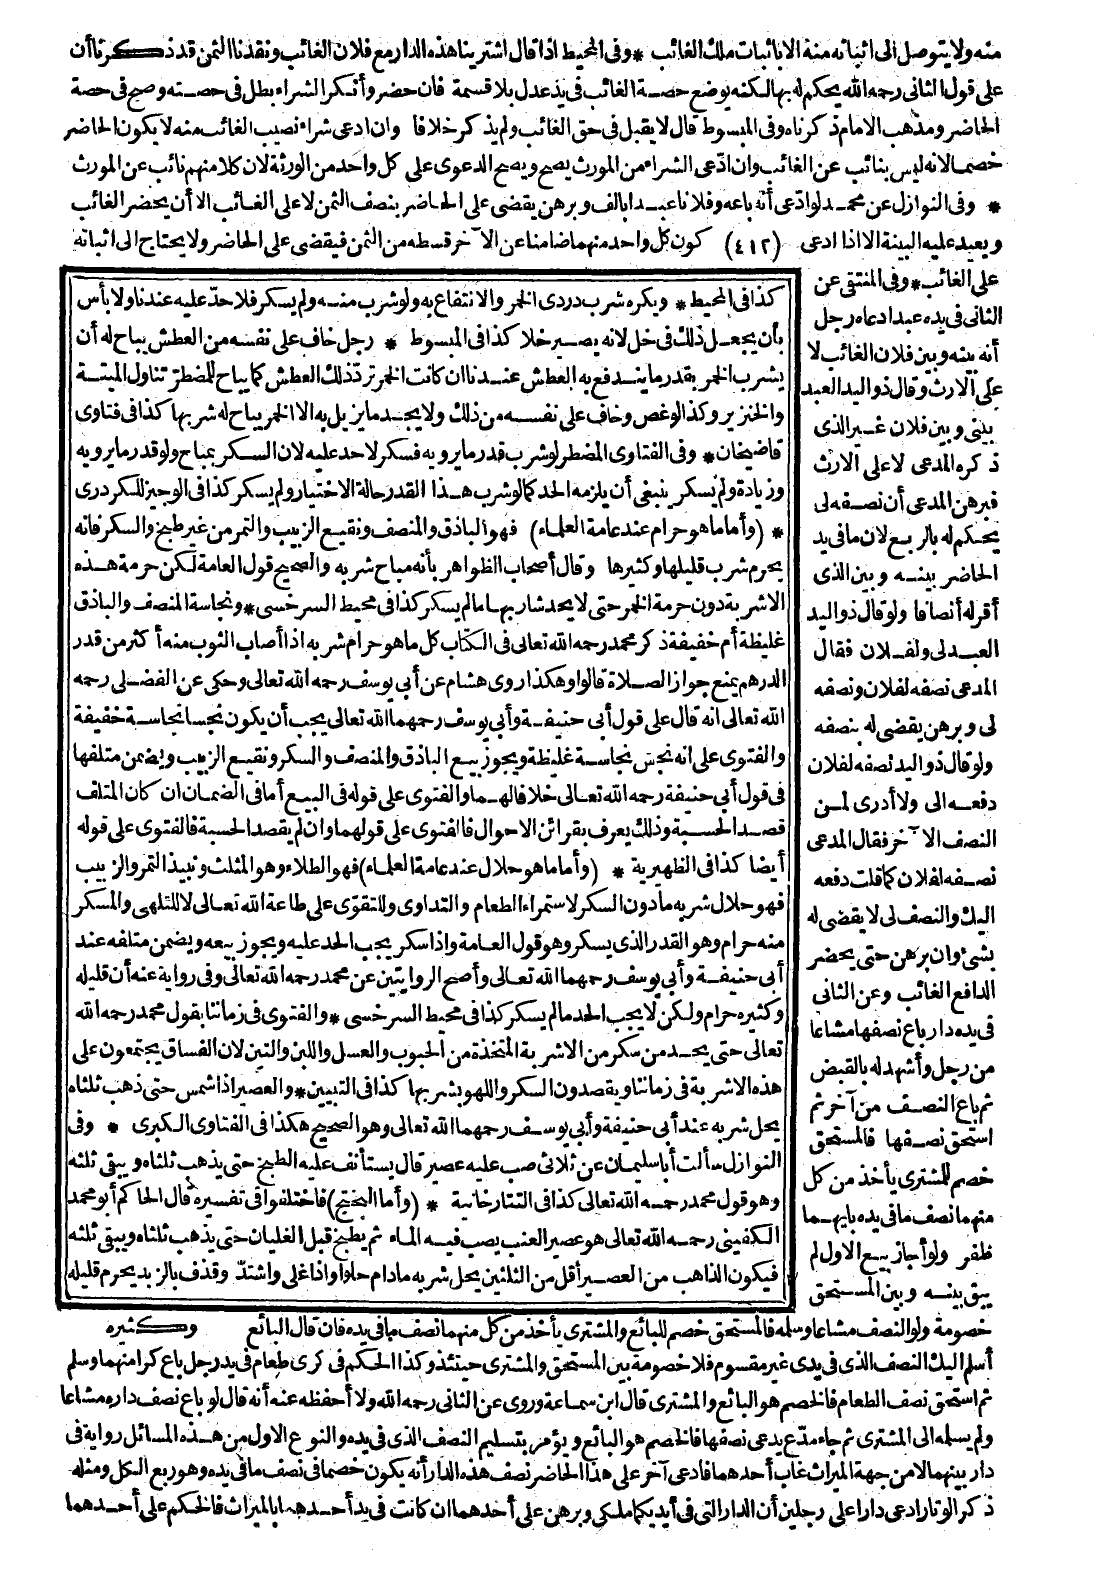 منه ولا يتوصل الى اثباته منه الا باثبات ملك الغائب * وفى المحيط اذا قال اشترينا هذه الدار مع فلان الغائب ونقدنا الثمن قد ذكرنا أن
على قول الثانى رحمه الله يحكم له بها لكنه يوضع حصة الغائب فى يد عدل بلا قسمة فان حضر وأنكر الشراء بطل فى حصته وصح فى حصة
الحاضر ومذهب الامام ذكرناه وفى المبسوط قال لا يقبل فى حق الغائب ولم يذكر خلافا وان ادعى شراء نصيب الغائب منه لا يكون الحاضر
خصما لانه ليس بنائب عن الغائب وان ادّعى الشراء من المورث يصح ويصح الدعوى على كل واحد من الورثة لان كلا منهم نائب عن المورث
* وفى النوازل عن محمد لو ادّعى أنه باعه وفلانا عبدا بالف وبرهن يقضى على الحاضر بنصف الثمن لا على الغائب الا أن يحضر الغائب
ويعيد عليه البينة الا اذا ادعى (٤١٢) كون كل واحد منهما ضامنا عن الآخر قسطه من الثمن فيقضى على الحاضر ولا يحتاج الى اثباته
على الغائب * وفى المنتقى عن
الثانى فى يده عبد ادعاه رجل
أنه بينه وبين فلان الغائب لا
على الارث وقال ذو اليد العبد
بينى وبين فلان غير الذى
ذكره المدعى لا على الارث
فبرهن المدعى أن نصفه لى
يحكم له بالربع لان ما فى يد
الحاضر بينه وبين الذى
أقر له أنصافا ولو قال ذو اليد
العبد لى ولفلان فقال
المدعى نصفه لفلان ونصفه
لى وبرهن يقضى له بنصفه
ولو قال ذو اليد نصفه لفلان
دفعه الى ولا أدرى لمن
النصف الآخر فقال المدعى
نصفه لفلان كما قلت دفعه
اليك والنصف لى لا يقضى له
بشئ وان برهن حتى يحضر
الدافع الغائب وعن الثانى
فى يده دار باع نصفها مشاعا
من رجل وأشهد له بالقبض
ثم باع النصف من آخر ثم
استحق نصفها فالمستحق
خصم للمشترى يأخذ من كل
منهما نصف ما فى يده بايهما
ظفر ولو أجاز بيع الاول لم
يبق بينه وبين المستحق
كذا فى المحيط * ويكره شرب دردى الخمر والانتفاع به ولو شرب منه ولم يسكر فلا حدّ عليه عندنا ولا بأس
بأن يجعل ذلك فى خل لانه يصير خلا كذا فى المبسوط * رجل خاف على نفسه من العطش يباح له أن
يشرب الخمر بقدر ما يندفع به العطش عندنا ان كانت الخمر تردّ ذلك العطش كما يباح للمضطرّ تناول الميتة
والخنزير وكذا لو غص وخاف على نفسه من ذلك ولا يجد ما يزيل به الا الخمر يباح له شربها كذا فى فتاوى
قاضيخان * وفى الفتاوى المضطر لو شرب قدر ما يرويه فسكر لا حد عليه لان السكر بمباح ولو قدر ما يرويه
وزيادة ولم يسكر ينبغى أن يلزمه الحد كما لو شرب هذا القدر حالة الاختيار ولم يسكر كذا فى الوجيز للكردرى
* (وأما ما هو حرام عند عامة العلماء) فهو الباذق والمنصف ونقيع الزبيب والتمر من غير طبخ والسكر فانه
يحرم شرب قليلها وكثيرها وقال أصحاب الظواهر بأنه مباح شربه والصحيح قول العامة لكن حرمة هذه
الاشربة دون حرمة الخمر حتى لا يحد شاربها ما لم يسكر كذا فى محيط السرخسى * ونجاسة المنصف والباذق
غليظة أم خفيفة ذكر محمد رحمه الله تعالى فى الكتاب كل ما هو حرام شربه اذا أصاب الثوب منه أكثر من قدر
الدرهم يمنع جواز الصلاة قالوا وهكذا روى هشام عن أبى يوسف رحمه الله تعالى وحكى عن الفضلى رحمه
الله تعالى انه قال على قول أبى حنيفة وأبى يوسف رحمهما الله تعالى يجب أن يكون نجسا نجاسة خفيفة
والفتوى على انه نجس نجاسة غليظة ويجوز بيع الباذق والمنصف والسكر ونقيع الزبيب ويضمن متلفها
فى قول أبى حنيفة رحمه الله تعالى خلافا لهما والفتوى على قوله فى البيع أما فى الضمان ان كان المتلف
قصد الحسبة وذلك يعرف بقرائن الاحوال فالفتوى على قولهما وان لم يقصد الحسبة فالفتوى على قوله
أيضا كذا فى الظهيرية * (وأما ما هو حلال عند عامة العلماء) فهو الطلاء وهو المثلث ونبيذ التمر والزبيب
فهو حلال شربه ما دون السكر لاستمراء الطعام والتداوى وللتقوّى على طاعة الله تعالى لا للتلهى والمسكر
منه حرام وهو القدر الذى يسكر وهو قول العامة واذا سكر يجب الحد عليه ويجوز بيعه ويضمن متلفه عند
أبى حنيفة وأبى يوسف رحمهما الله تعالى وأصح الروايتين عن محمد رحمه الله تعالى وفى رواية عنه أن قليله
وكثيره حرام ولكن لا يجب الحد ما لم يسكر كذا فى محيط السرخسى * والفتوى فى زماننا بقول محمد رحمه الله
تعالى حتى يحد من سكر من الاشربة المتخذة من الحبوب والعسل واللبن والتين لان الفساق يجتمعون على
هذه الاشربة فى زماننا ويقصدون السكر واللهو بشربها كذا فى التبيين * والعصير اذا شمس حتى ذهب ثلثاه
يحل شربه عند أبى حنيفة وأبى يوسف رحمهما الله تعالى وهو الصحيح هكذا فى الفتاوى الكبرى * وفى
النوازل سألت أبا سليمان عن ثلاثى صب عليه عصير قال يستأنف عليه الطبخ حتى يذهب ثلثاه ويبقى ثلثه
وهو قول محمد رحمه الله تعالى كذا فى التتارخانية * (وأما البختج) فاختلفوا فى تفسيره قال الحاكم أبو محمد
الكفينى رحمه الله تعالى هو عصير العنب يصب فيه الماء ثم يطبخ قبل الغليان حتى يذهب ثلثاه ويبقى ثلثه
فيكون الذاهب من العصير أقل من الثلثين يحل شربه ما دام حلوا واذا غلى واشتدّ وقذف بالزبد يحرم قليله
وكثيره
خصومة ولو النصف مشاعا وسلمه فالمستحق خصم للبائع والمشترى يأخذ من كل منهما نصف ما فى يده فان قال البائع
أسلم اليك النصف الذى فى يدى غير مقسوم فلا خصومة بين المستحق والمشترى حينئذ وكذا الحكم فى كرى طعام فى يد رجل باع كرا منهما وسلم
ثم استحق نصف الطعام فالخصم هو البائع والمشترى قال ابن سماعة وروى عن الثانى رحمه الله ولا أحفظه عنه أنه قال لو باع نصف داره مشاعا
ولم يسلمه الى المشترى ثم جاء مدّع يدعى نصفها فالخصم هو البائع ويؤمر بتسليم النصف الذى فى يده والنوع الاول من هذه المسائل رواية فى
دار بينهما لا من جهة الميراث غاب أحدهما فادعى آخر على هذا الحاضر نصف هذه الدار أنه يكون خصما فى نصف ما فى يده وهو ربع الكل ومثله
ذكر الوتار ادعى دارا على رجلين أن الدار التى فى أيديكما ملكى وبرهن على أحدهما ان كانت فى يد أحدهما بالميراث فالحكم على أحدهما